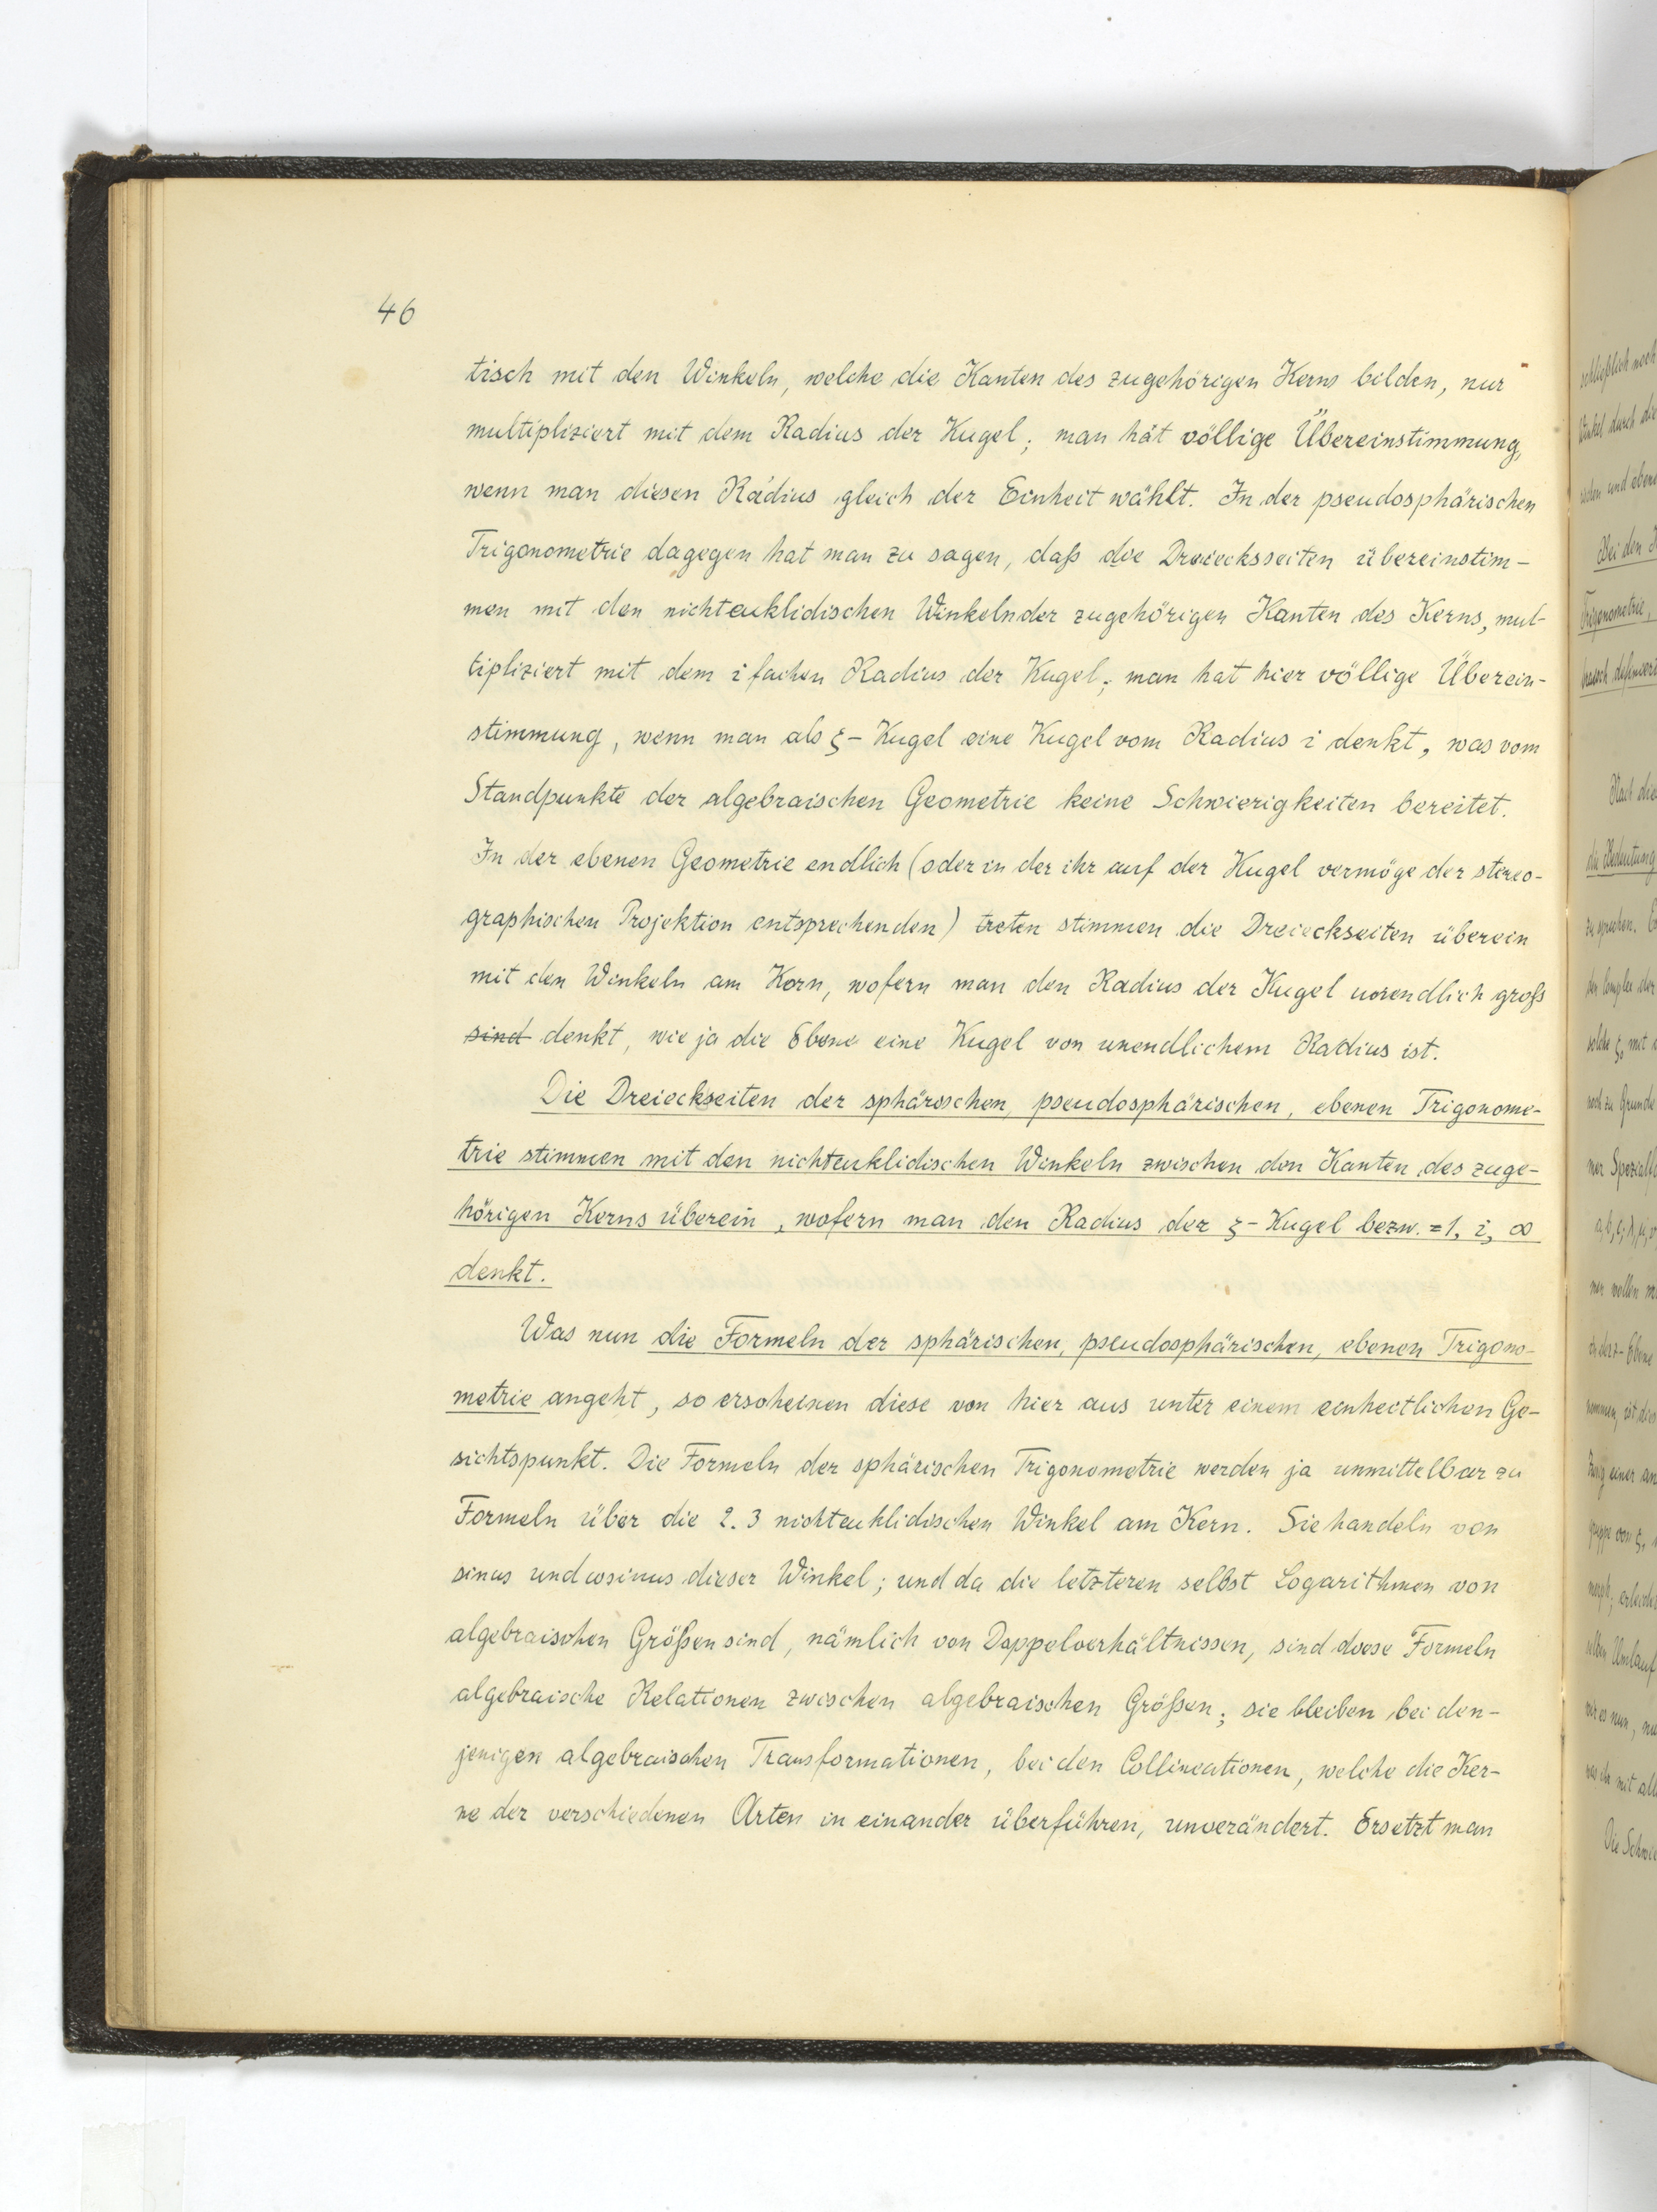 46
tisch mit den Winkeln, welche die Kanten des zugehörigen Kerns bilden, nur
multipliziert mit dem Radius der Kugel; man hat völlige Übereinstimmung,
wenn man diesen Radius gleich der Einheit wählt. In der pseudosphärischen
Trigonometrie dagegen hat man zu sagen, daß die Dreiecksseiten übereinstim-
men mit den nichteuklidischen Winkeln der zugehörigen Kanten des Kerns, mul-
tipliziert mit dem i fachen Radius der Kugel; man hat hier völlige Überein-
stimmung, wenn man als ξ- Kugel eine Kugel vom Radius i denkt, was vom
Standpunkte der algebraischen Geometrie keine Schwierigkeiten bereitet.
In der ebenen Geometrie endlich (oder in der ihr auf der Kugel vermöge der stereo-
graphischen Projektion entsprechenden) treten stimmen die Dreieckseiten überein
mit den Winkeln am Kern, wofern man den Radius der Kugel unendlich groß
sind denkt, wie ja die Ebene eine Kugel von unendlichem Radius ist.
Die Dreieckseiten der sphärischen, pseudosphärischen, ebenen Trigonome-
trie stimmen mit den nichteuklidischen Winkeln zwischen den Kanten des zuge-
hörigen Kerns überein, wofern man den Radius der ξ- Kugel bezw. = 1, i, ∞
denkt.
Was nun die Formeln der sphärischen, pseudosphärischen, ebenen Trigono-
metrie angeht, so erscheinen diese von hier aus unter einem einheitlichen Ge-
sichtspunkt. Die Formeln der sphärischen Trigonometrie werden ja unmittelbar zu
Formeln über die 2. 3 nichteuklidischen Winkel am Kern. Sie handeln von
sinus und cosinus dieser Winkel; und da die letzteren selbst Logarithmen von
algebraischen Größen sind, nämlich von Doppelverhältnissen, sind diese Formeln
algebraische Relationen zwischen algebraischen Größen; sie bleiben bei den-
jenigen algebraischen Transformationen, bei den Collineationen, welche die Ker-
ne der verschiedenen Arten in einander überführen, unverändert. Ersetzt man